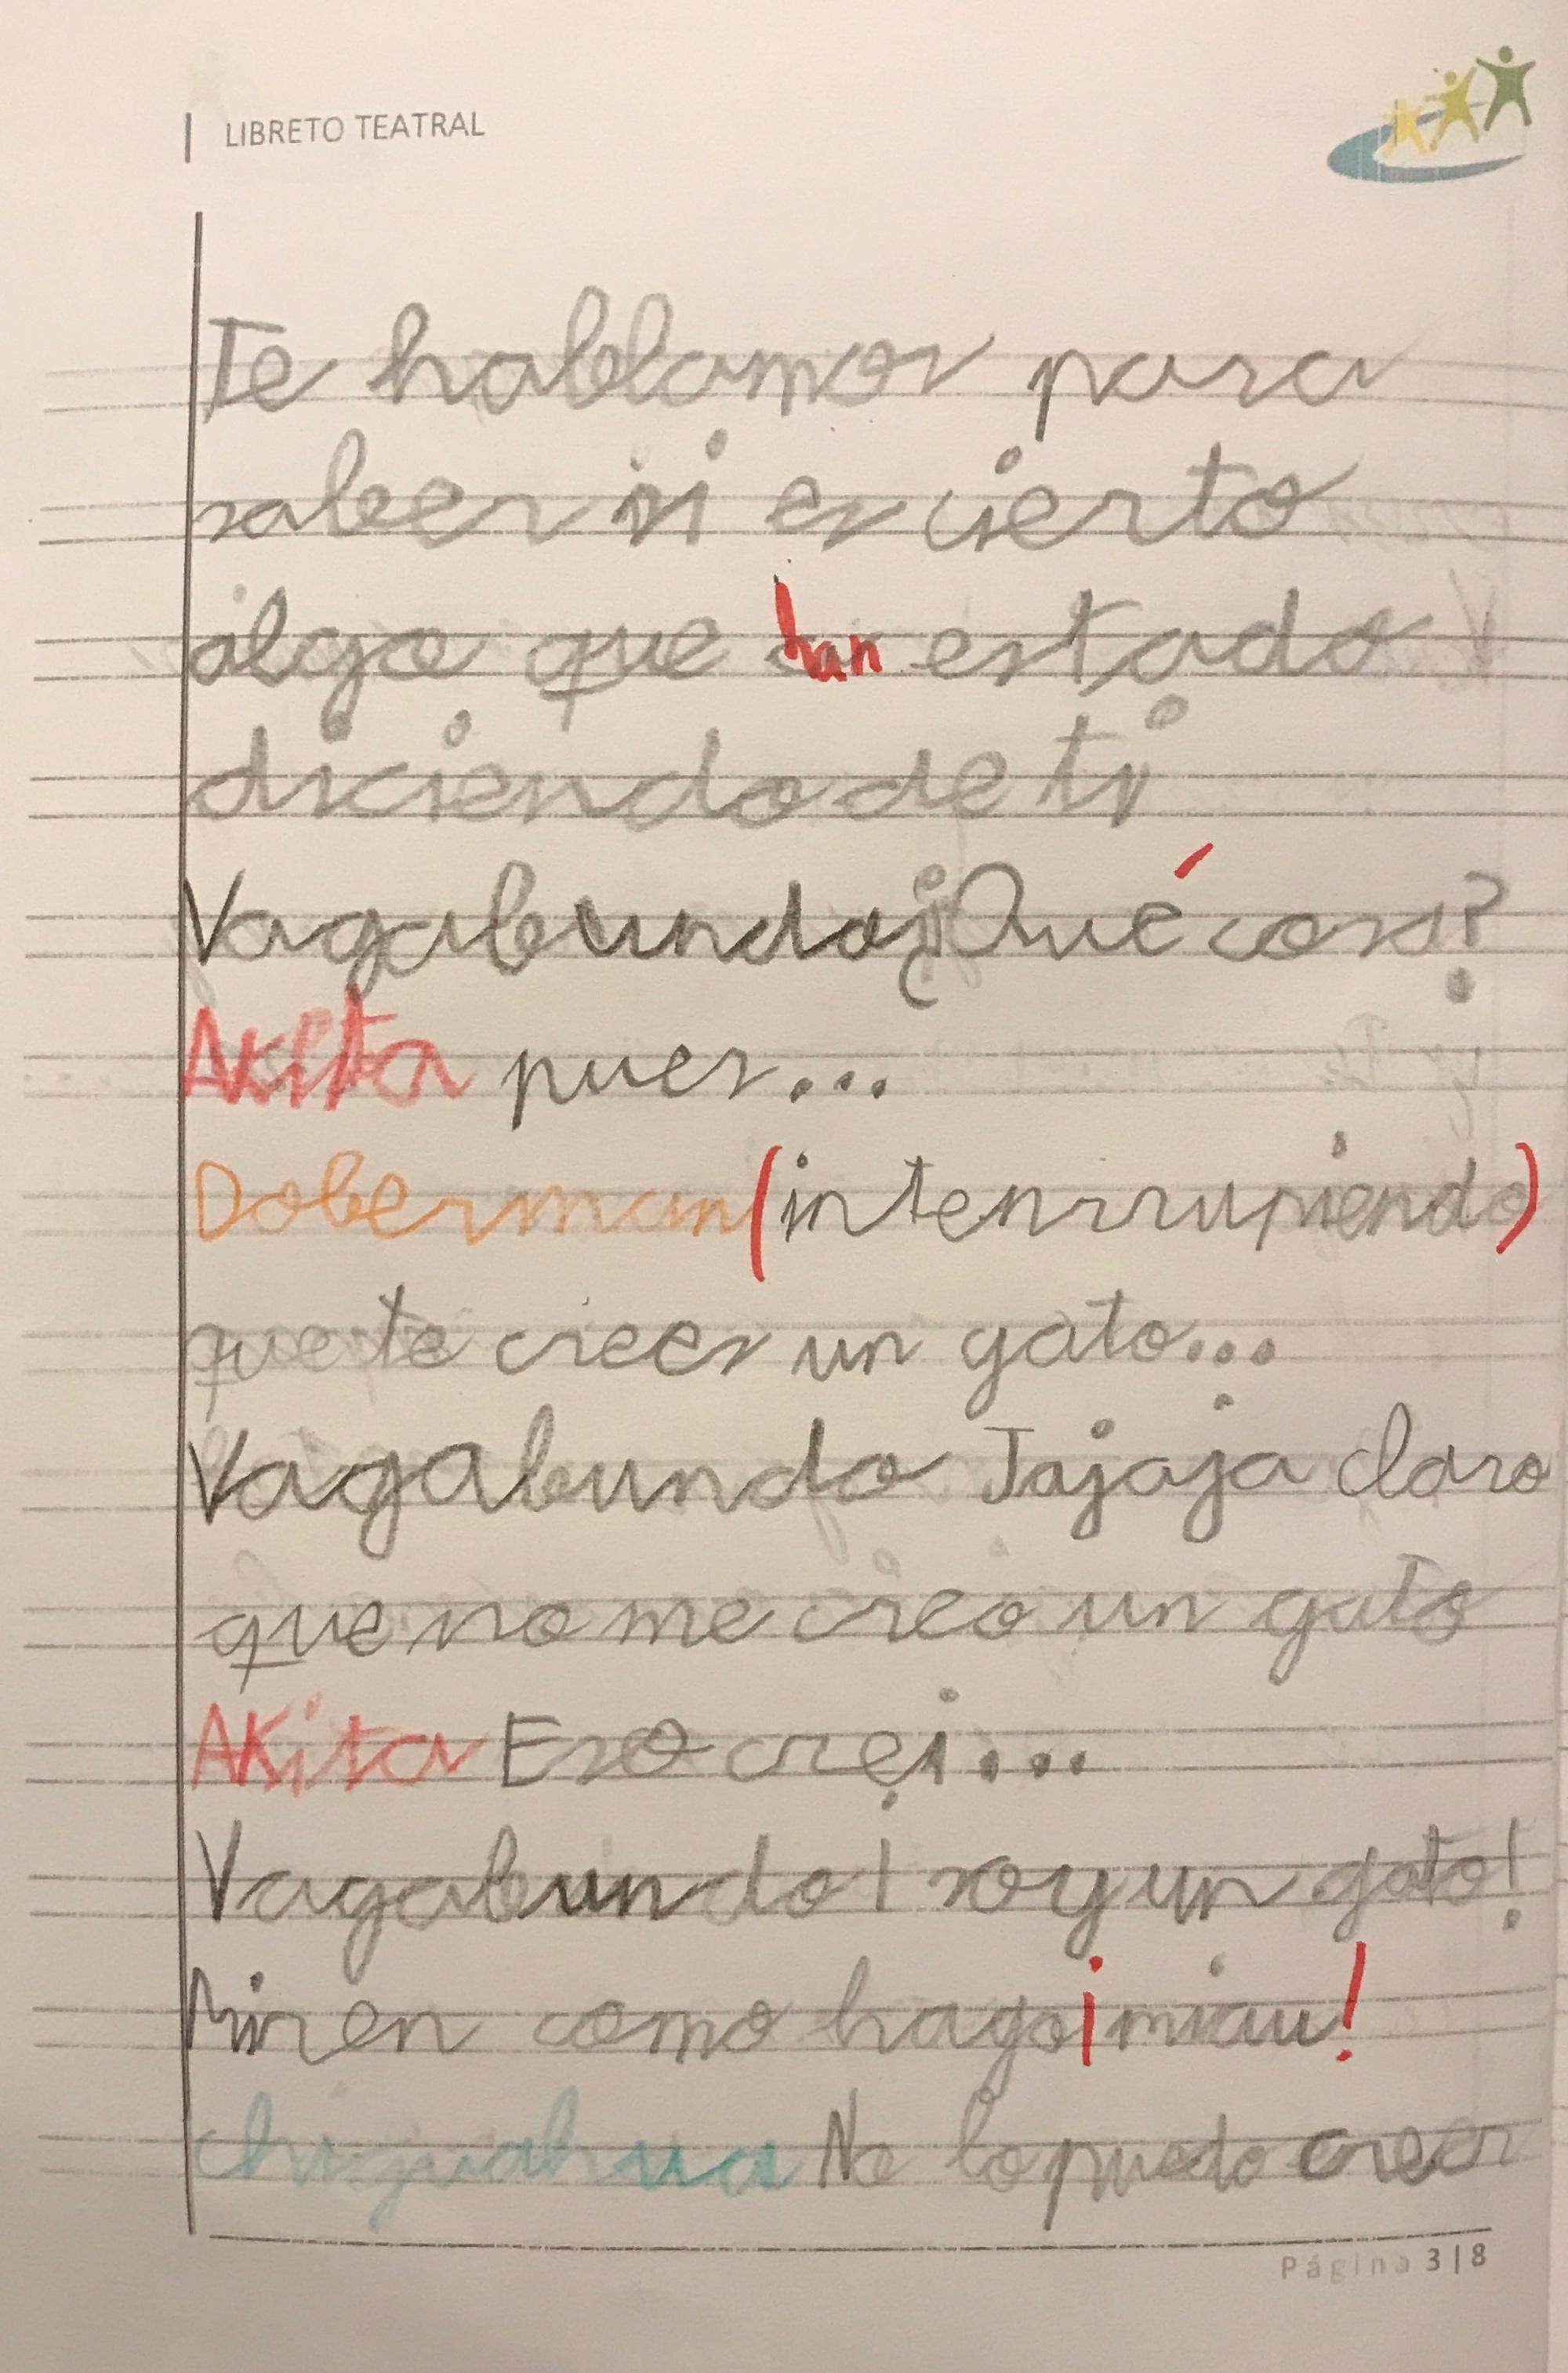 LIBRETO TEATRAL
Te hablamos para
saber si es cierto
algo que han estado
diciendo de ti
Vagabundo ¿Qué cosa?
Akita pues...
Doberman (intenrrumpiendo)
que te crees un gato...
Vagabundo Jajaja claro
que no me creo un gato
Akita Eso crei...
Vagabundo ¡soy un gato!
Miren como hago ¡miau!
chiguahua No lo puedo creer
Página 3|8